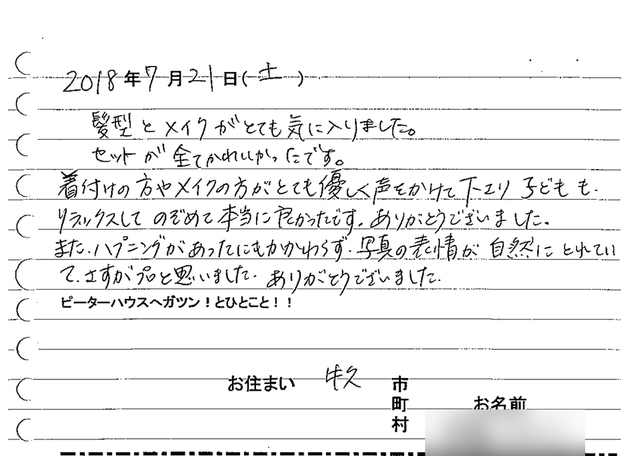 2018年7月21日(土)
髪型とメイクがとても気に入りました。
セットが全てかわいかったです。
着付けの方やメイクの方がとても優しく声をかけて下さり 子どもも、
リラックスして のぞめて本当に良かったです。ありがとうございました。
また、ハプニングがあったにもかかわらず、写真の表情が自然にとれてい
て、さすがプロと思いました。ありがとうございました。
ピーターハウスへガツン!とひとこと!!
お住まい 牛久 市
町 お名前
村